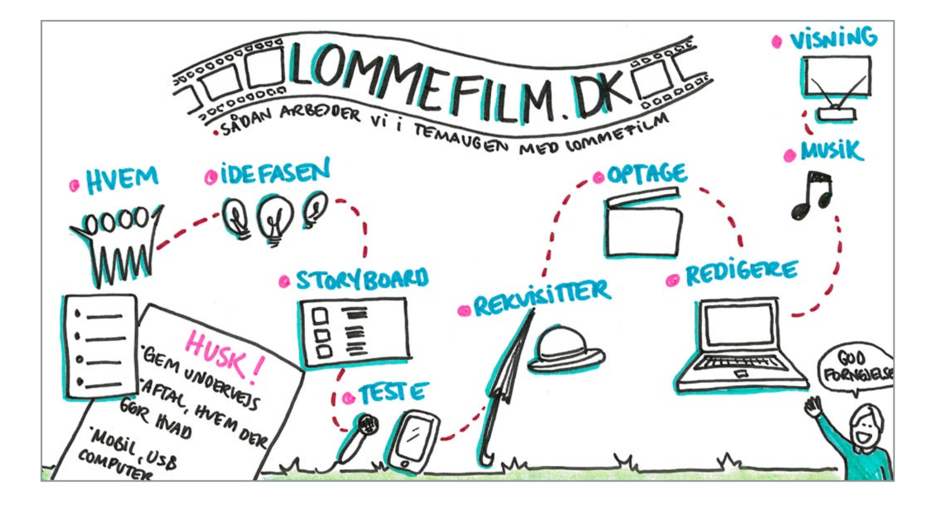 LOMMEFILM.DK
SÅDAN ARBEJDER Vi i TEMAUGEN MED LOMMEFILM
VISNING
MUSIK
HVEM
IDEFASEN
OPTAGE
STORYBOARD
REKVISITTER
REDIGERE
TESTE
HUSK!
GEM UNDERVEJS
AFTAL, HVEM DER
GØR HVAD
MOBIL, USB
COMPUTER
GOD
FORNØJELSE